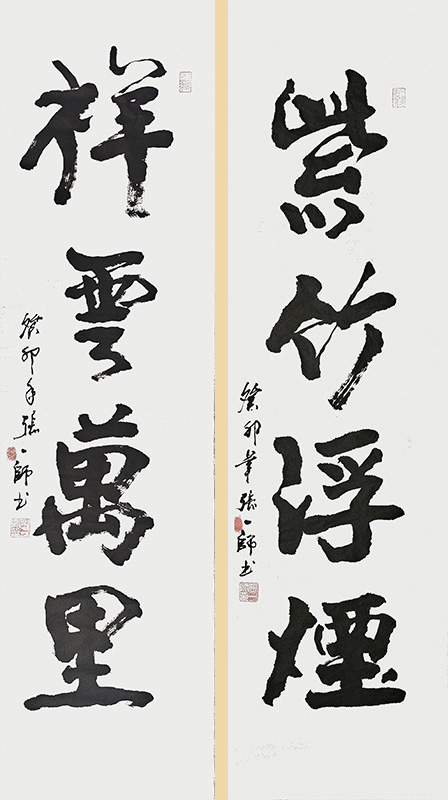 紫竹浮煙
癸卯年張一師書
祥雲萬里
癸卯年張一師書